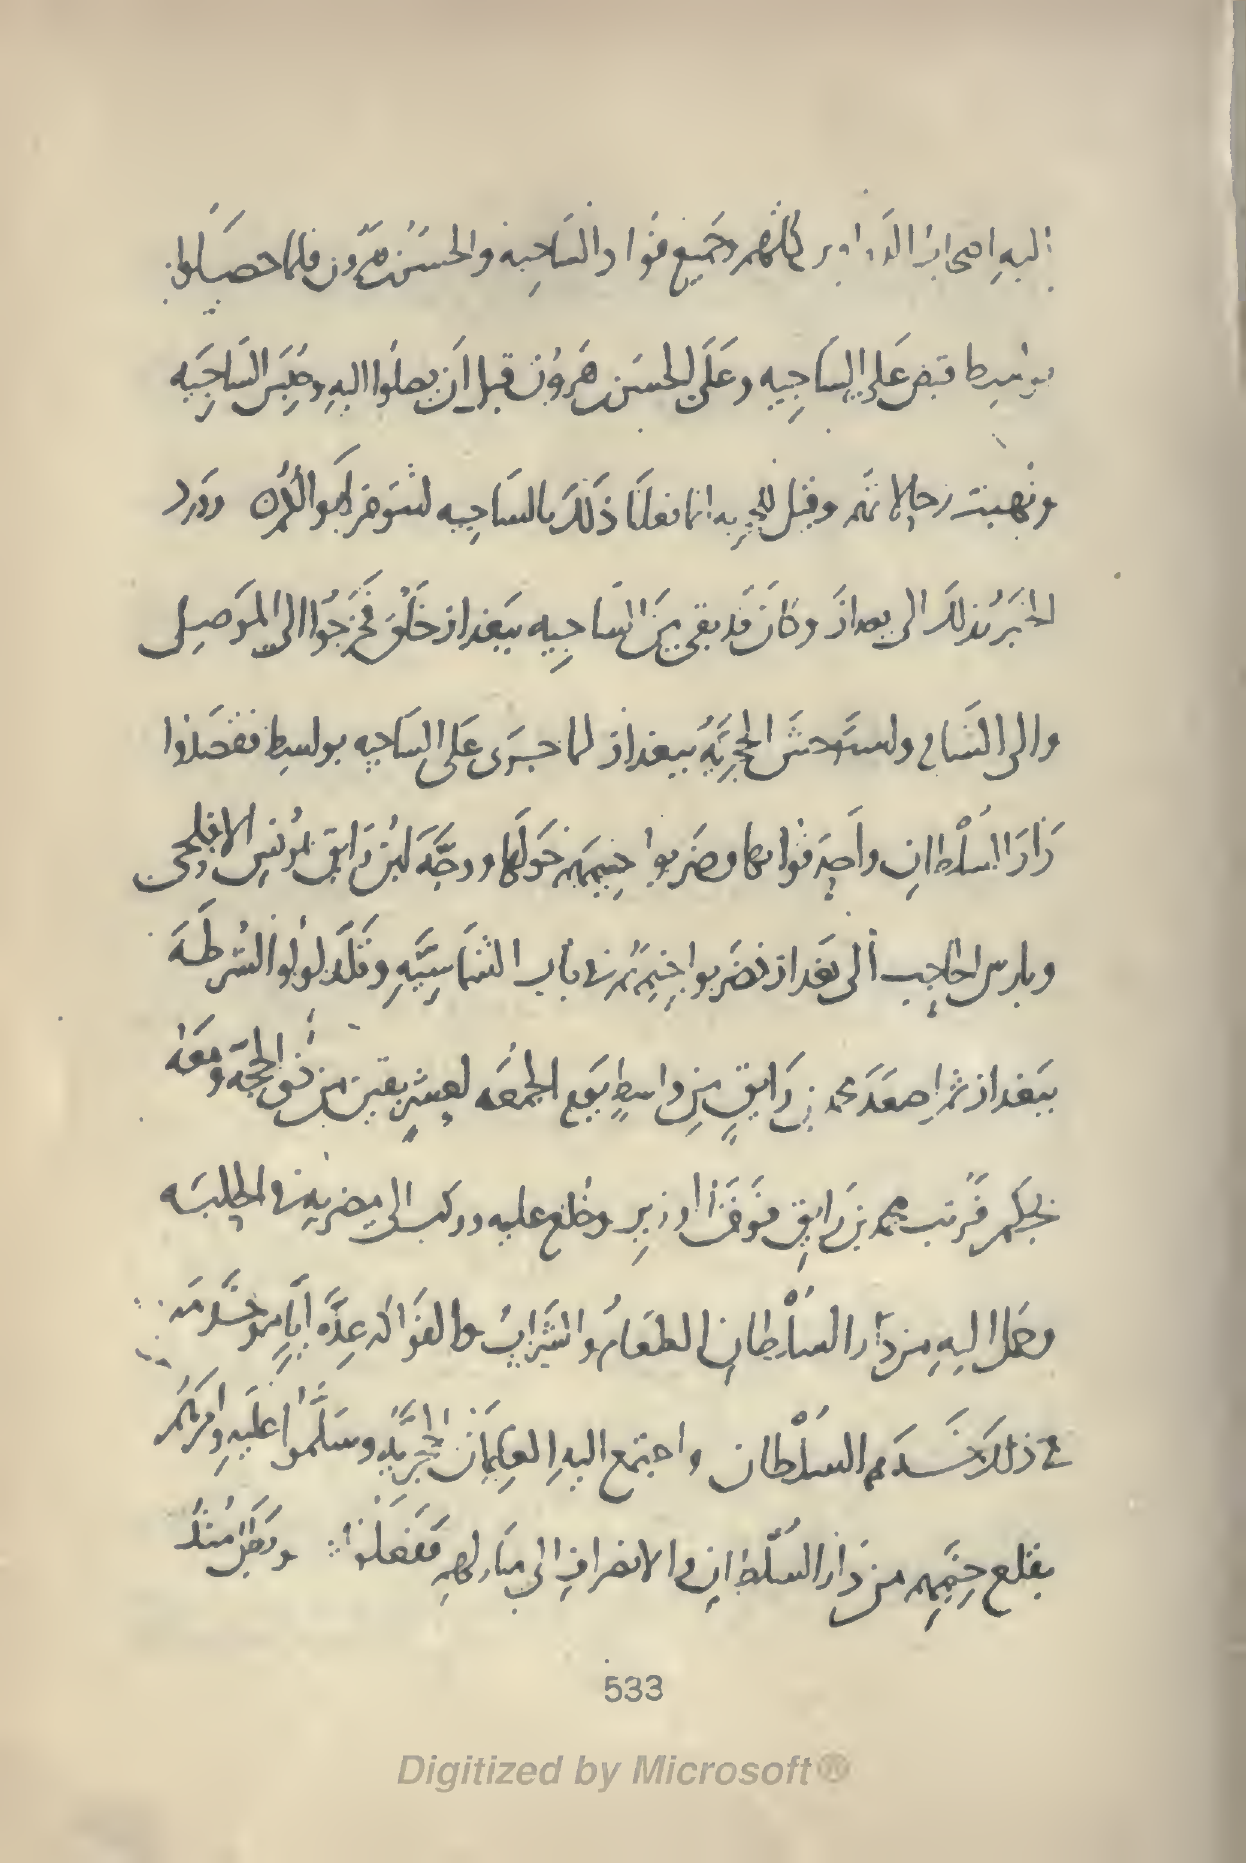 اليه اصحاب الدواوين كلهم وجميع قواد الساجيه والحسن بن هرون فلما حصلوا
بواسط قبض على الساجيه وعلى الحسن بن هرون قبل ان يصلوا اليه وحبس الساجيه
ونهبت رحالاتهم وقيل للحجريه انما فعلنا ذلك بالساجيه لتتوفر اموالهم وورد
الخبر بذلك الى بغداذ وكان قد بقى من الساجيه ببغداذ خلق فخرجوا الى الموصل
والى الشام واستوحش الحجريه ببغداذ لما جرى على الساجيه بواسط فقصدوا
دار السلطان واحدقوا بها وضربوا خيمهم حولها ووجه ابن رايق مونس الافلحى
وبارس الحاجب الى بغداذ فضربوا خيمهم فى باب الشماسيه وقلد لولوا الشرطة
ببغداذ ثم اصعد محمد بن رايق من واسط يوم الجمعه لعشر بقين من ذى الحجه ومعه
بجكم فرتب محمد بن رايق فوق الوزير وخلع عليه وركب الى مضربه فى الحلبه
وحمل اليه من دار السلطان الطعام والشراب والفواكه عدة ايام وخدمه
فى ذلك خدم السلطان واجتمع اليه الغلمان الحجريه وسلموا عليه وامرهم
بقلع خيمهم من دار السلطان والانصراف الى منازلهم ففعلوا
533
Digitized by Microsoft®